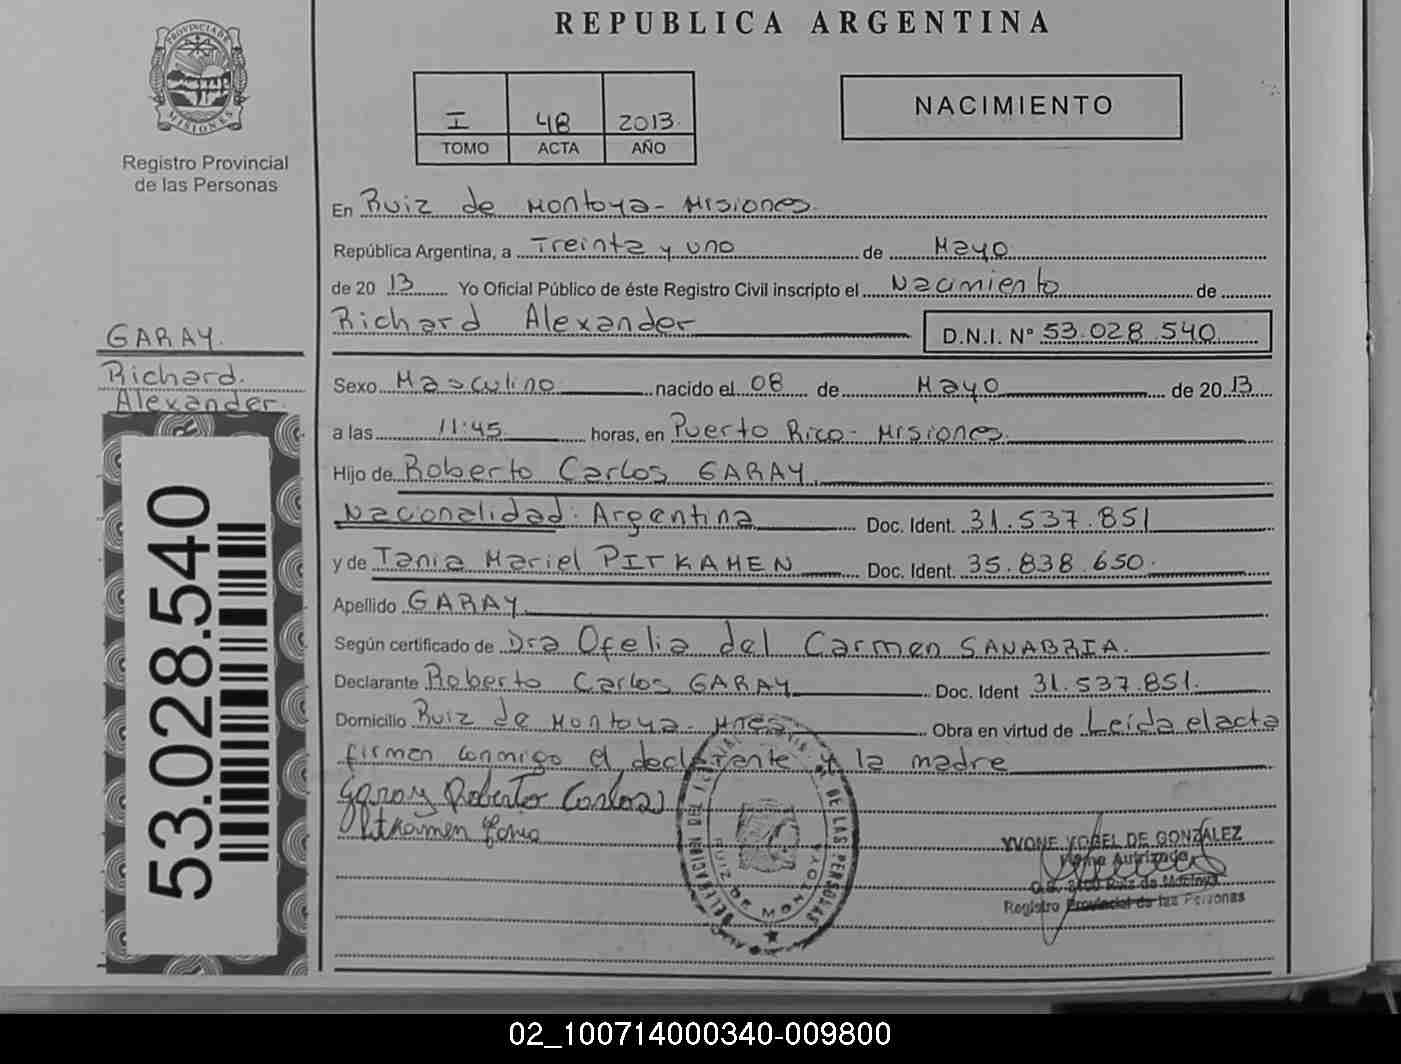 REPUBLICA ARGENTINA
PROVINCIA DE
MISIONES
Registro Provincial
de las Personas
I 48 2013
TOMO ACTA AÑO
NACIMIENTO
En Ruiz de Montoya - Misiones
República Argentina, a Treinta y uno de Mayo
de 20 13 Yo Oficial Público de éste Registro Civil inscripto el Nacimiento de
Richard Alexander D.N.I. N° 53.028.540
GARAY
Richard
Alexander
Sexo Masculino nacido el 08 de Mayo de 20 13
a las 11:45 horas, en Puerto Rico - Misiones
Hijo de Roberto Carlos GARAY
Nacionalidad: Argentina Doc. Ident. 31.537.851
y de Tania Mariel PITKAMEN Doc. Ident. 35.838.650
Apellido GARAY
Según certificado de Dra Ofelia del Carmen SANABRIA
Declarante Roberto Carlos GARAY Doc. Ident 31.537.851
Domicilio Ruiz de Montoya - Mnes Obra en virtud de Leída el acta
firman conmigo el declarante y la madre
Garay Roberto Carlos
Pitkamen Tania
53.028.540
DELEGACION DEL DE LAS PERSONAS
RUIZ DE MONTOYA
YVONE VOGEL DE GONZALEZ
Firma Autorizada
Ruiz de Montoya
Registro Provincial de las Personas
02_100714000340-009800